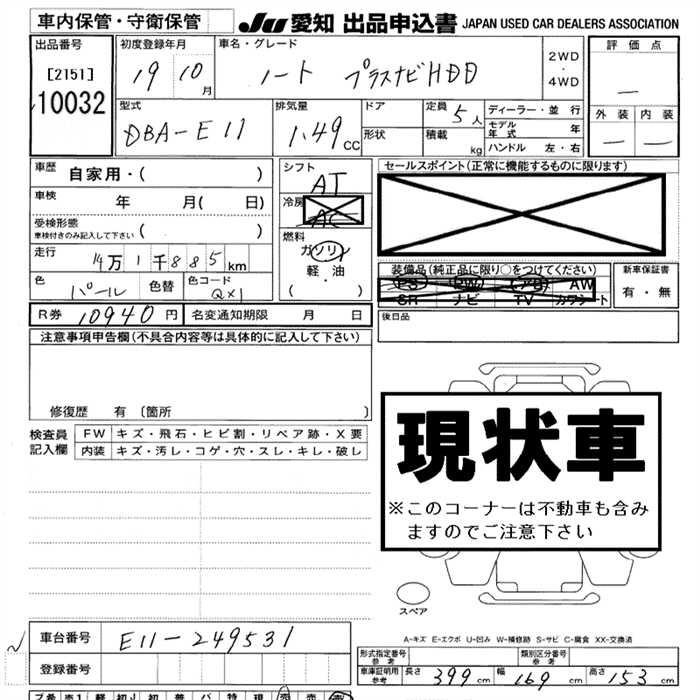 車内保管・守衛保管 JU 愛知 出品申込書 JAPAN USED CAR DEALERS ASSOCIATION
出品番号 初度登録年月 車名・グレード 評価点
[2151] 19 10月 ノート プラスナビHDD 2WD・4WD —
10032
型式 排気量 ドア 定員 5人 ディーラー・並行 外装 内装
DBA-E11 1.49cc 形状 積載 kg モデル年式 年 — —
ハンドル 左・右
車歴 自家用・( ) シフト AT セールスポイント(正常に機能するものに限ります)
車検 年 月( 日) 冷房 AC
受検形態 車検付きのみ記入して下さい ( ) 燃料 ガソリン
走行 14万1千885km 軽・油 装備品(純正品に限り○をつけてください) 新車保証書
色 パール 色替 色コード QX1 ( ・ ) PS PW AB AW 有・無
SR ナビ TV カワシート
R券 10940円 名変通知期限 月 日 後日品
注意事項申告欄(不具合内容等は具体的に記入して下さい)
修復歴 有 〔箇所 〕
検査員記入欄 FW キズ・飛石・ヒビ割・リペア跡・X要
内装 キズ・汚レ・コゲ・穴・スレ・キレ・破レ
現状車
※このコーナーは不動車も含み
ますのでご注意下さい
スペア
A-キズ E-エクボ U-凹み W-補修跡 S-サビ C-腐食 XX-交換済
車台番号 E11-249531
登録番号
形式指定番号 参考 類別区分番号 参考
車庫証明用 参考 長さ 399cm 幅 169cm 高さ 153cm